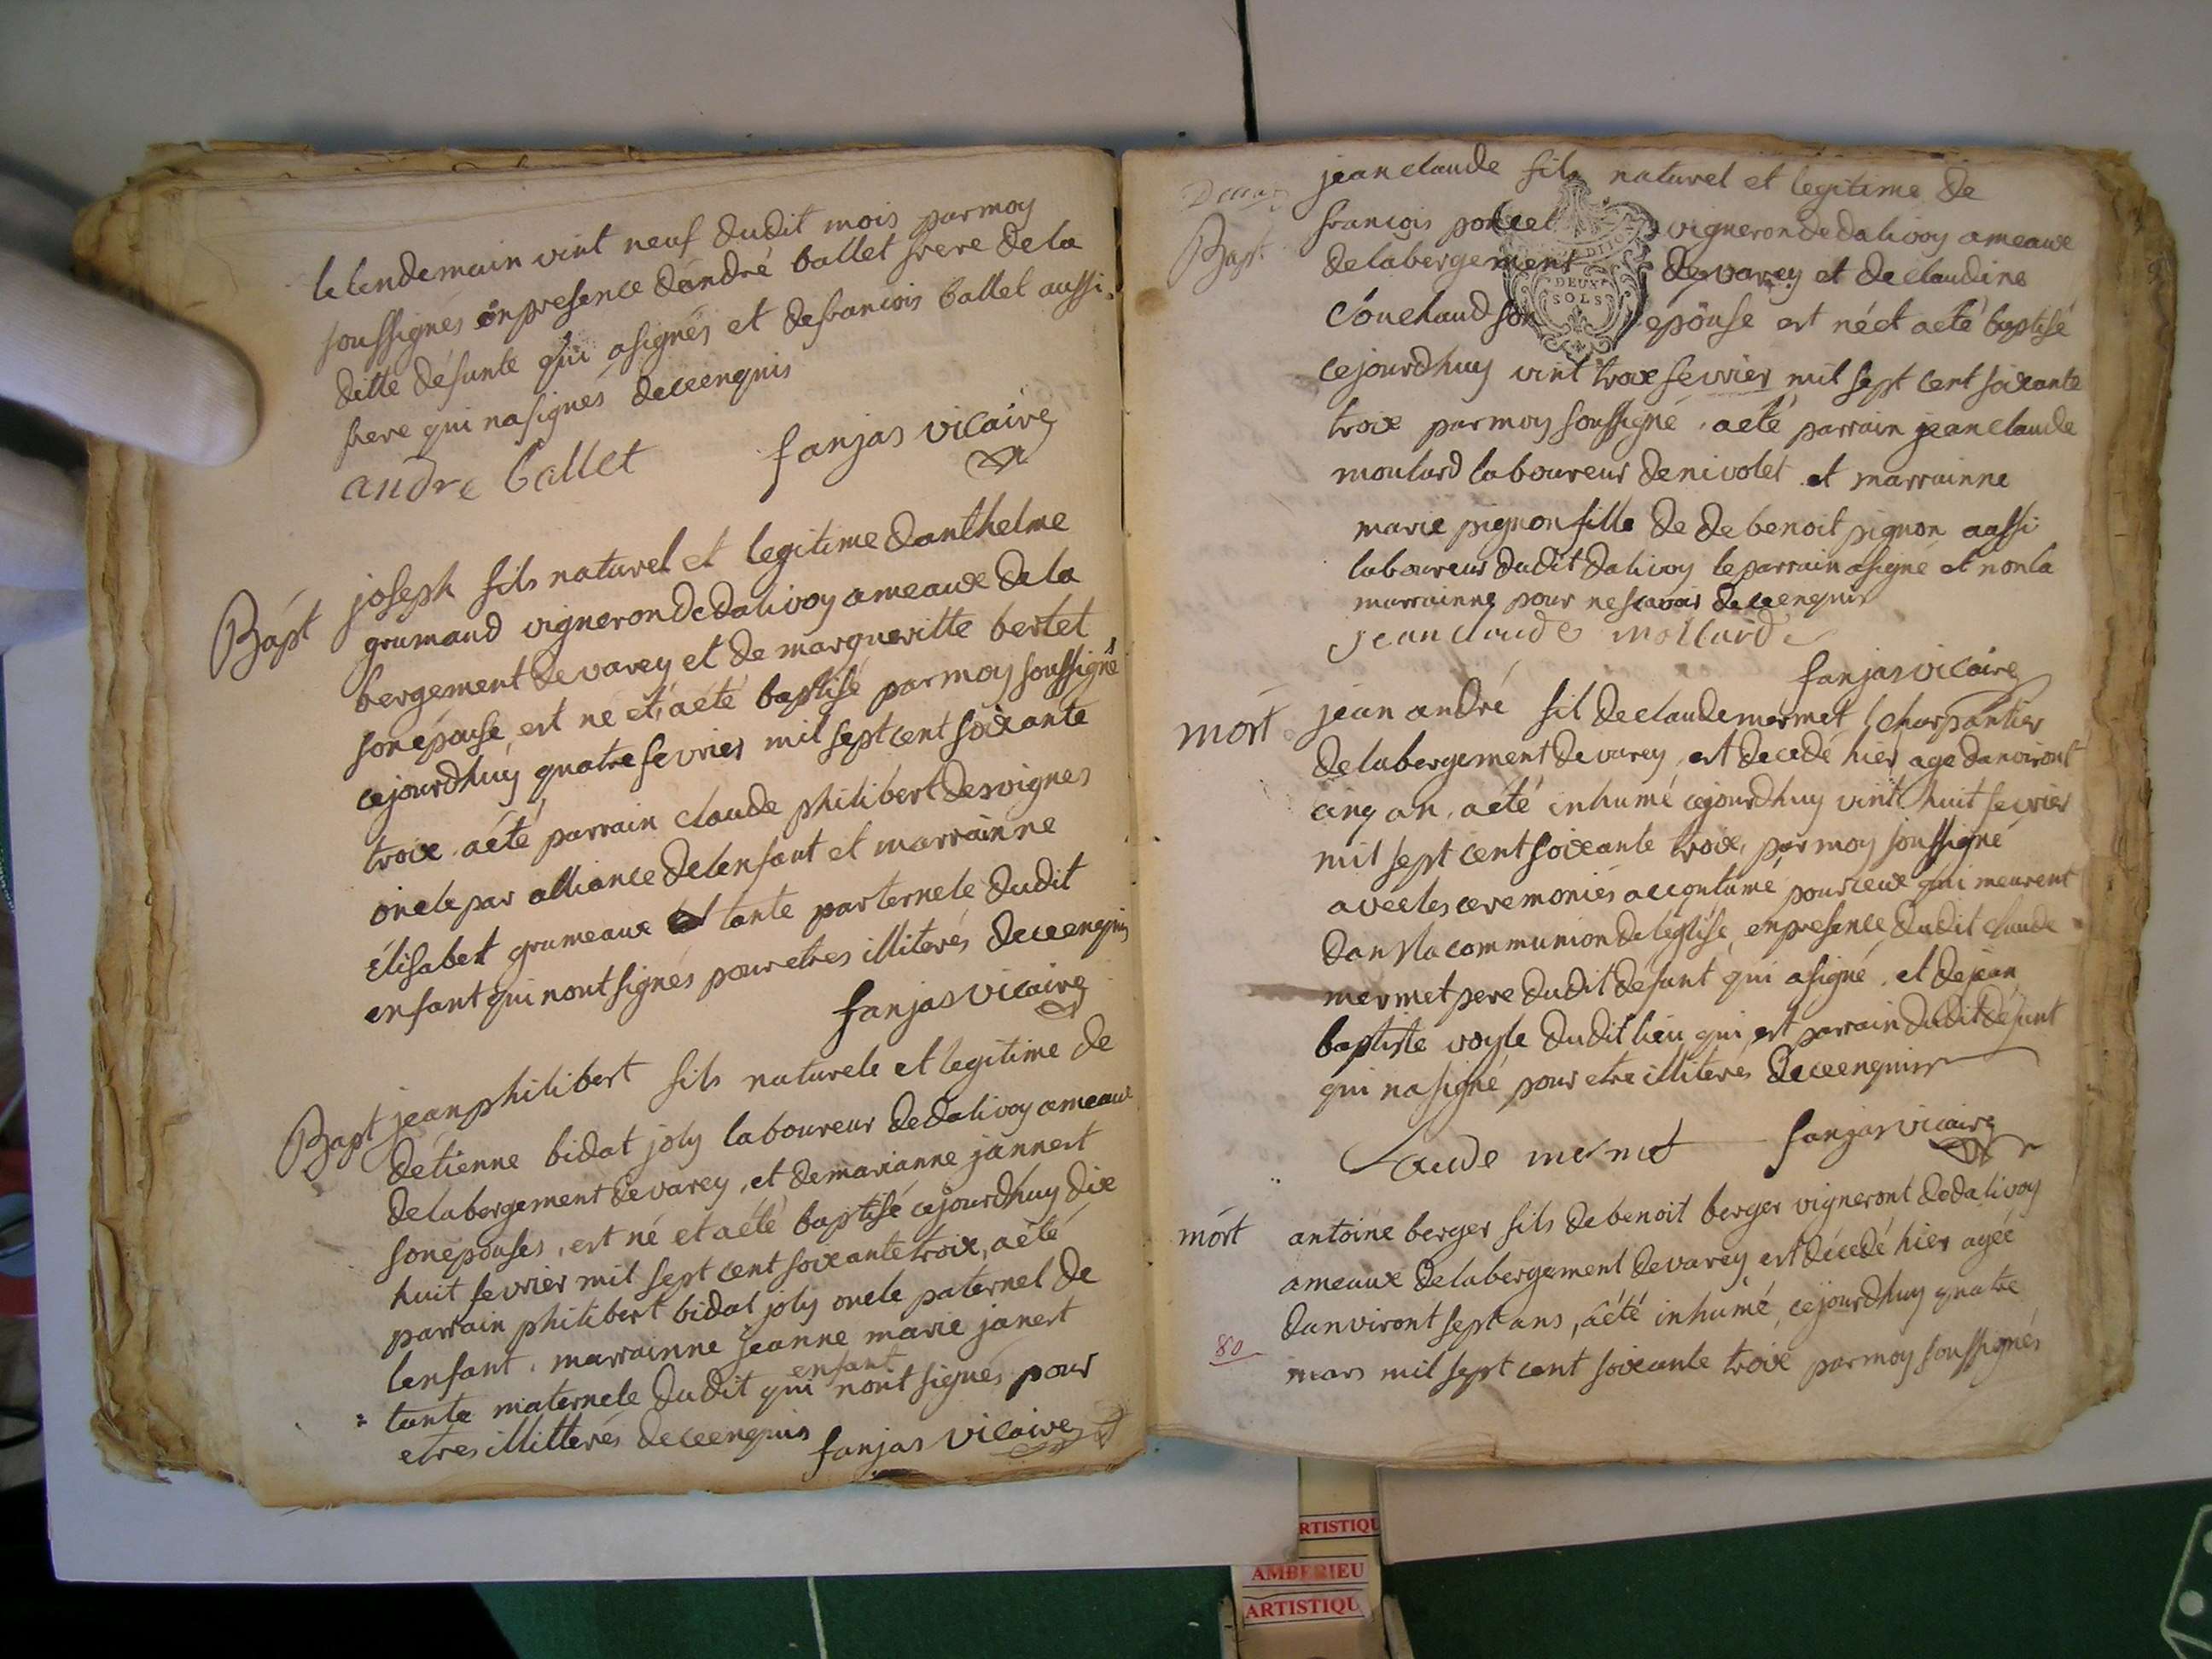 le lendemain vint neuf dudit mois par moy
soussignés en presence dandré ballet frere de la
ditte défunte qui asignés et defrancois ballet aussi
frere qui nasignés deceenquis
andre ballet fanjas vicaire
Bapt
joseph fils naturel et legitime danthelme
grumaud vigneron de dalivoy ameaux de la
bergement de varey et de margueritte bertet
son épouse, est né et aété baptisé par moy soussigné
cejourdhuy quatre fevrier mil sept cent soixante
troix. aété parrain claude philibert desvignes
oncle par alliance delenfant et marrainne
élisabet grumeaux tante parternele dudit
enfant qui nont signés pour etres illiterés deceenquis
fanjas vicaire
Bapt
jean philibert fils naturele et legitime de
détienne bidat joly laboureur de dalivoy ameaux
delabergement de varey, et demarianne jannert
son epouses, est né et aété baptisé cejourdhuy dix
huit fevrier mil sept cent soixante troix, aété
parrain philibert bidat joly oncle paternel de
lenfant. marrainne jeanne marie janert
enfant
tante maternele dudit qui nont signés pour
etres illitterés deceenquis fanjas vicaire
Bapt
jean claude fils naturel et legitime de
francois poncet vigneron de dalivoy ameaux
delabergement de varey et de claudine
Couchaud son epouse est né et aeté baptisé
cejourdhuy vint troix fevrier mil sept cent soixante
troix par moy soussigné. aété parrain jean claude
moulard laboureur de nivolet et marrainne
marie pignon fille de de benoit pignon aussi
laboureur dudit dalivoy le parrain asigné et non la
marrainne pour nescavoir deceenquis
jean claude mollard
fanjas vicaire
DEUX
SOLS
mort
jean andré fil de claude mermet charpantier
delabergement de varey, est decedé hier age danviront
cinq an. aété inhumé cejourdhuy vint huit fevrier
mil sept cent soixante troix, par moy soussigné
avec les ceremonies accoutumé pour ceux qui meurent
dans la communion de léglise, en presence dudit claude
mermet pere dudit defunt qui asigné. et de jean
baptiste voyle dudit lieu qui est parrain dudit défunt
qui nasigné pour etre illiteres deceenquis
Laude mermet fanjas vicaire
mort
antoine berger fils de benoit berger vigneront de dalivoy
ameaux delabergement de varey est décedé hier ageé
danviront sept ans, aété inhumé, cejourdhuy quatre
mars mil sept cent soixante troix par moy soussignés
80
RTISTIQU
AMBERIEU
ARTISTIQU